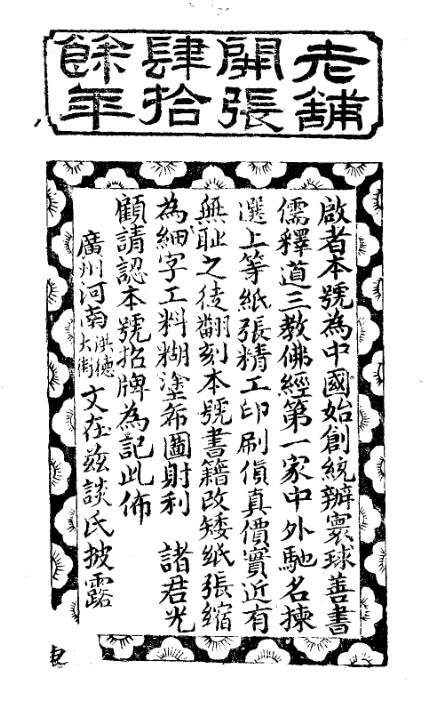 老舖
開張
肆拾
餘年
啟者本號為中國始創統辦寰球善書
儒釋道三教佛經第一家中外馳名揀
選上等紙張精工印刷貨真價實近有
無恥之徒翻刻本號書籍改矮紙張縮
為細字工料糊塗希圖財利 諸君光
顧請認本號招牌為記此佈
廣州河南洪德大街文在茲談氏披露